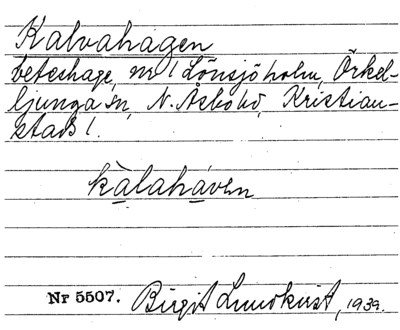 Kalvahagen
beteshage, nr 1 Lönsjöholm, Örkel-
ljunga sn, N. Åsbo hd, Kristian-
stads l.
kàlaháven
Nr 5507. Birgit Lundkvist, 1939.